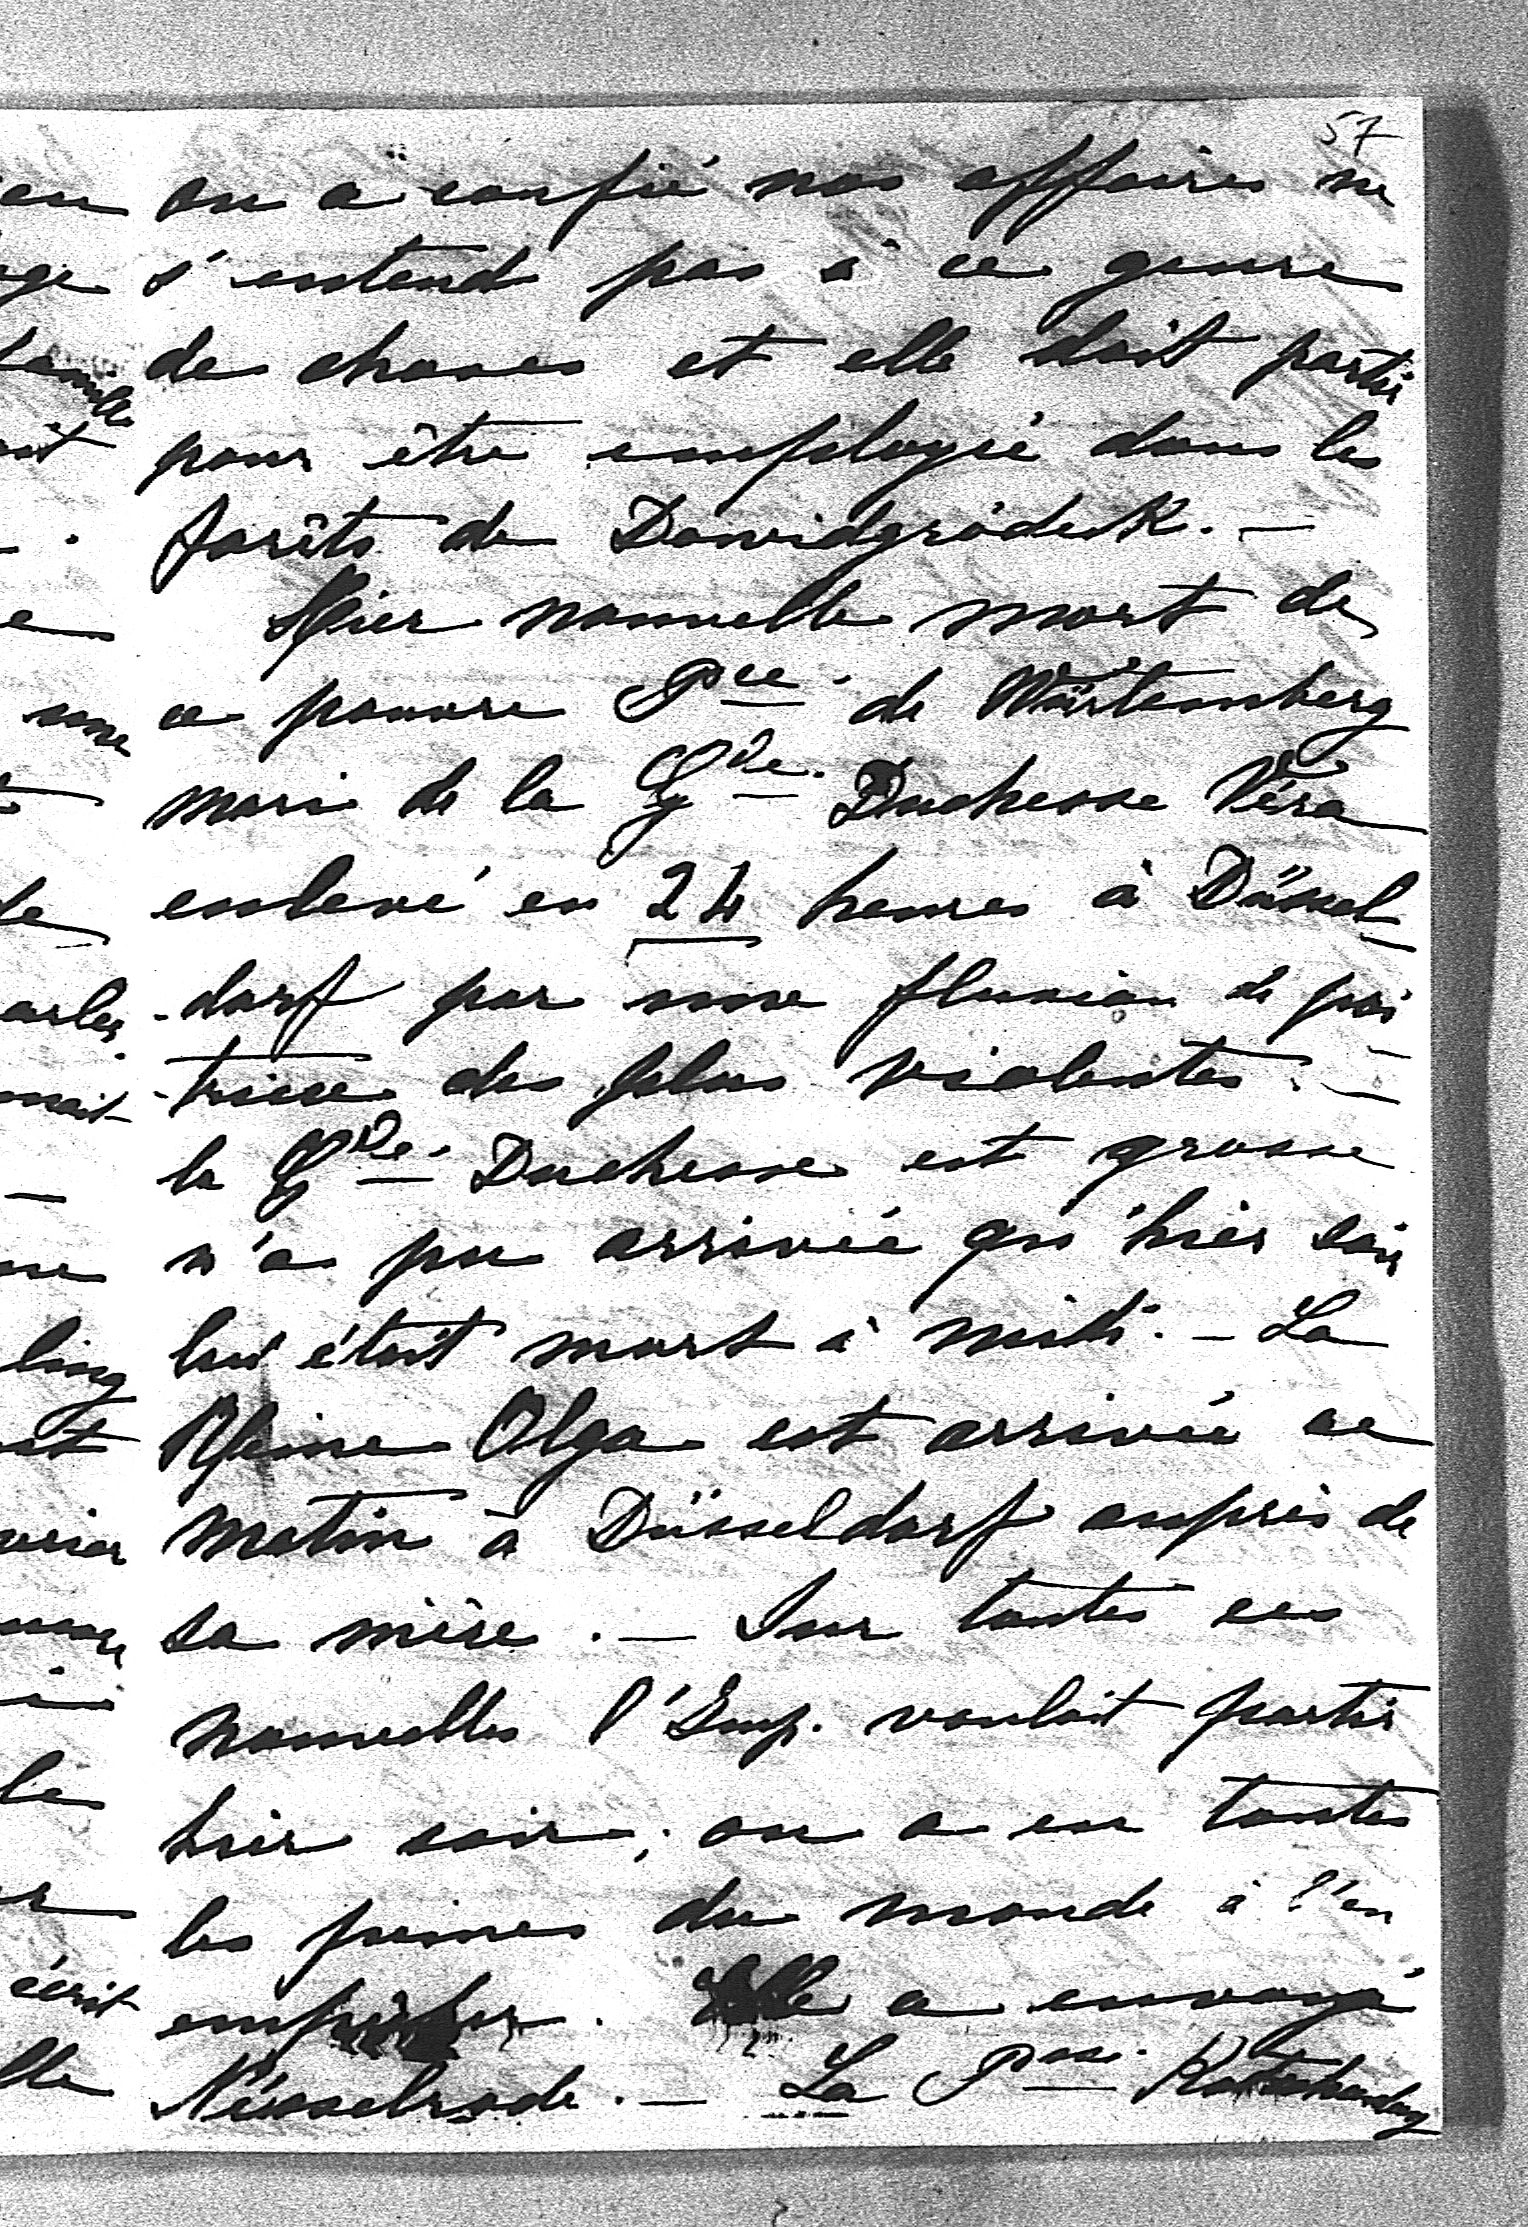 57
on a confié nos affaires ne
s'entend pas à ce genre
de choses et elle doit partir
pour être employé dans les
forêts de Dawidgródek. —
Hier nouvelle mort de
ce pauvre Pce. de Würtemberg
mari de la Gde. Duchesse Véra
enlevé en 24 heures à Düssel
-dorf par une fluxion de poi
-trine des plus violentes. —
la Gde. Duchesse est grosse
n'a pu arrivée qu'hier soir
lui était mort à midi. — La
Reine Olga est arrivée ce
matin à Düsseldorf auprès de
sa mère. — Sur toutes ces
nouvelles l'Imp. voulait partir
hier soir, on a eu toutes
les peines du monde à l'en
empêcher. Elle a envoyé
Nésselrode. — La Psse.